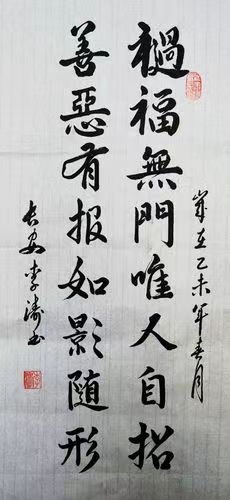 歲在乙未年春月
禍福無門唯人自招
善惡有报如影隨形
长安李濤书